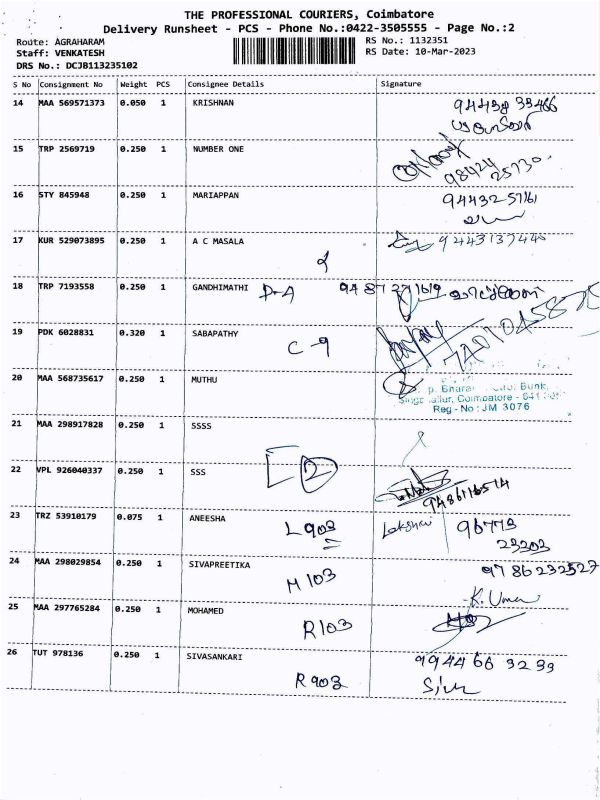 THE PROFESSIONAL COURIERS, Coimbatore
Delivery Runsheet - PCS - Phone No.:0422-3505555 - Page No.:2
Route: AGRAHARAM
Staff: VENKATESH
DRS No.: DCJB113235102
RS No.: 1132351
RS Date: 10-Mar-2023
S No Consignment No Weight PCS Consignee Details Signature
14 MAA 569571373 0.050 1 KRISHNAN
15 TRP 2569719 0.250 1 NUMBER ONE 98424
25730.
16 STY 845948 0.250 1 MARIAPPAN
17 KUR 529073895 0.250 1 A C MASALA
18 TRP 7193558 0.250 1 GANDHIMATHI D-A
19 PDK 6028831 0.320 1 SABAPATHY
C-9
20 MAA 568735617 0.250 1 MUTHU
Coimbatore - 641
Reg - No : JM 3076
21 MAA 298917828 0.250 1 SSSS
22 VPL 926040337 0.250 1 SSS
2
9486116514
23 TRZ 53910179 0.075 1 ANEESHA
L903 96773
23203
24 MAA 298029854 0.250 1 SIVAPREETIKA 9786232527
M103
K. Uma
25 MAA 297765284 0.250 1 MOHAMED
R103
26 TUT 978136 0.250 1 SIVASANKARI 99446 63233
R903